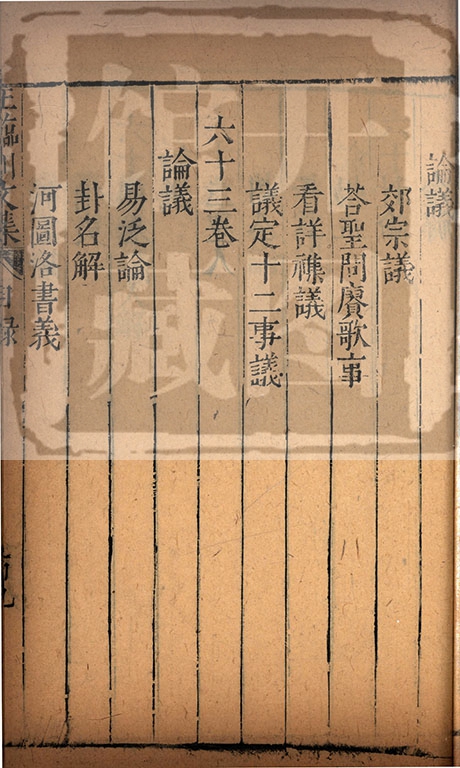 論議
郊宗議
荅聖問賡歌事
看詳襍議
議定十二事議
六十三卷
論議
易泛論
卦名解
河圖洛書義
王臨川文集 目錄